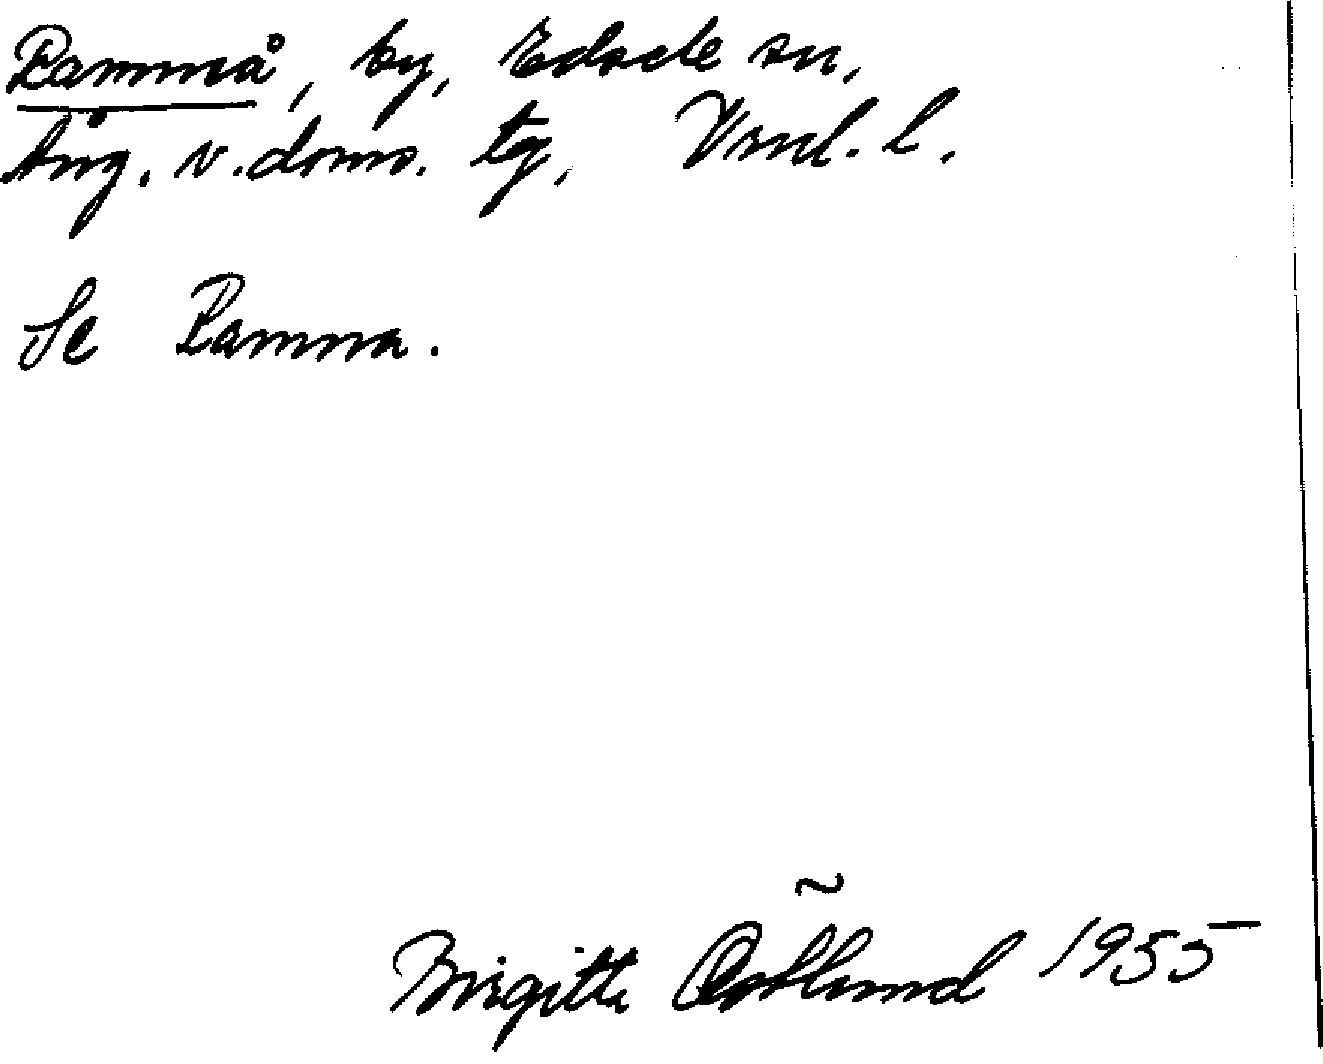 Ramnå, by, Edsele sn,
Ång. v. doms. tg, Vrnl. l.
Se Ramna.
Birgitta Östlund 1955